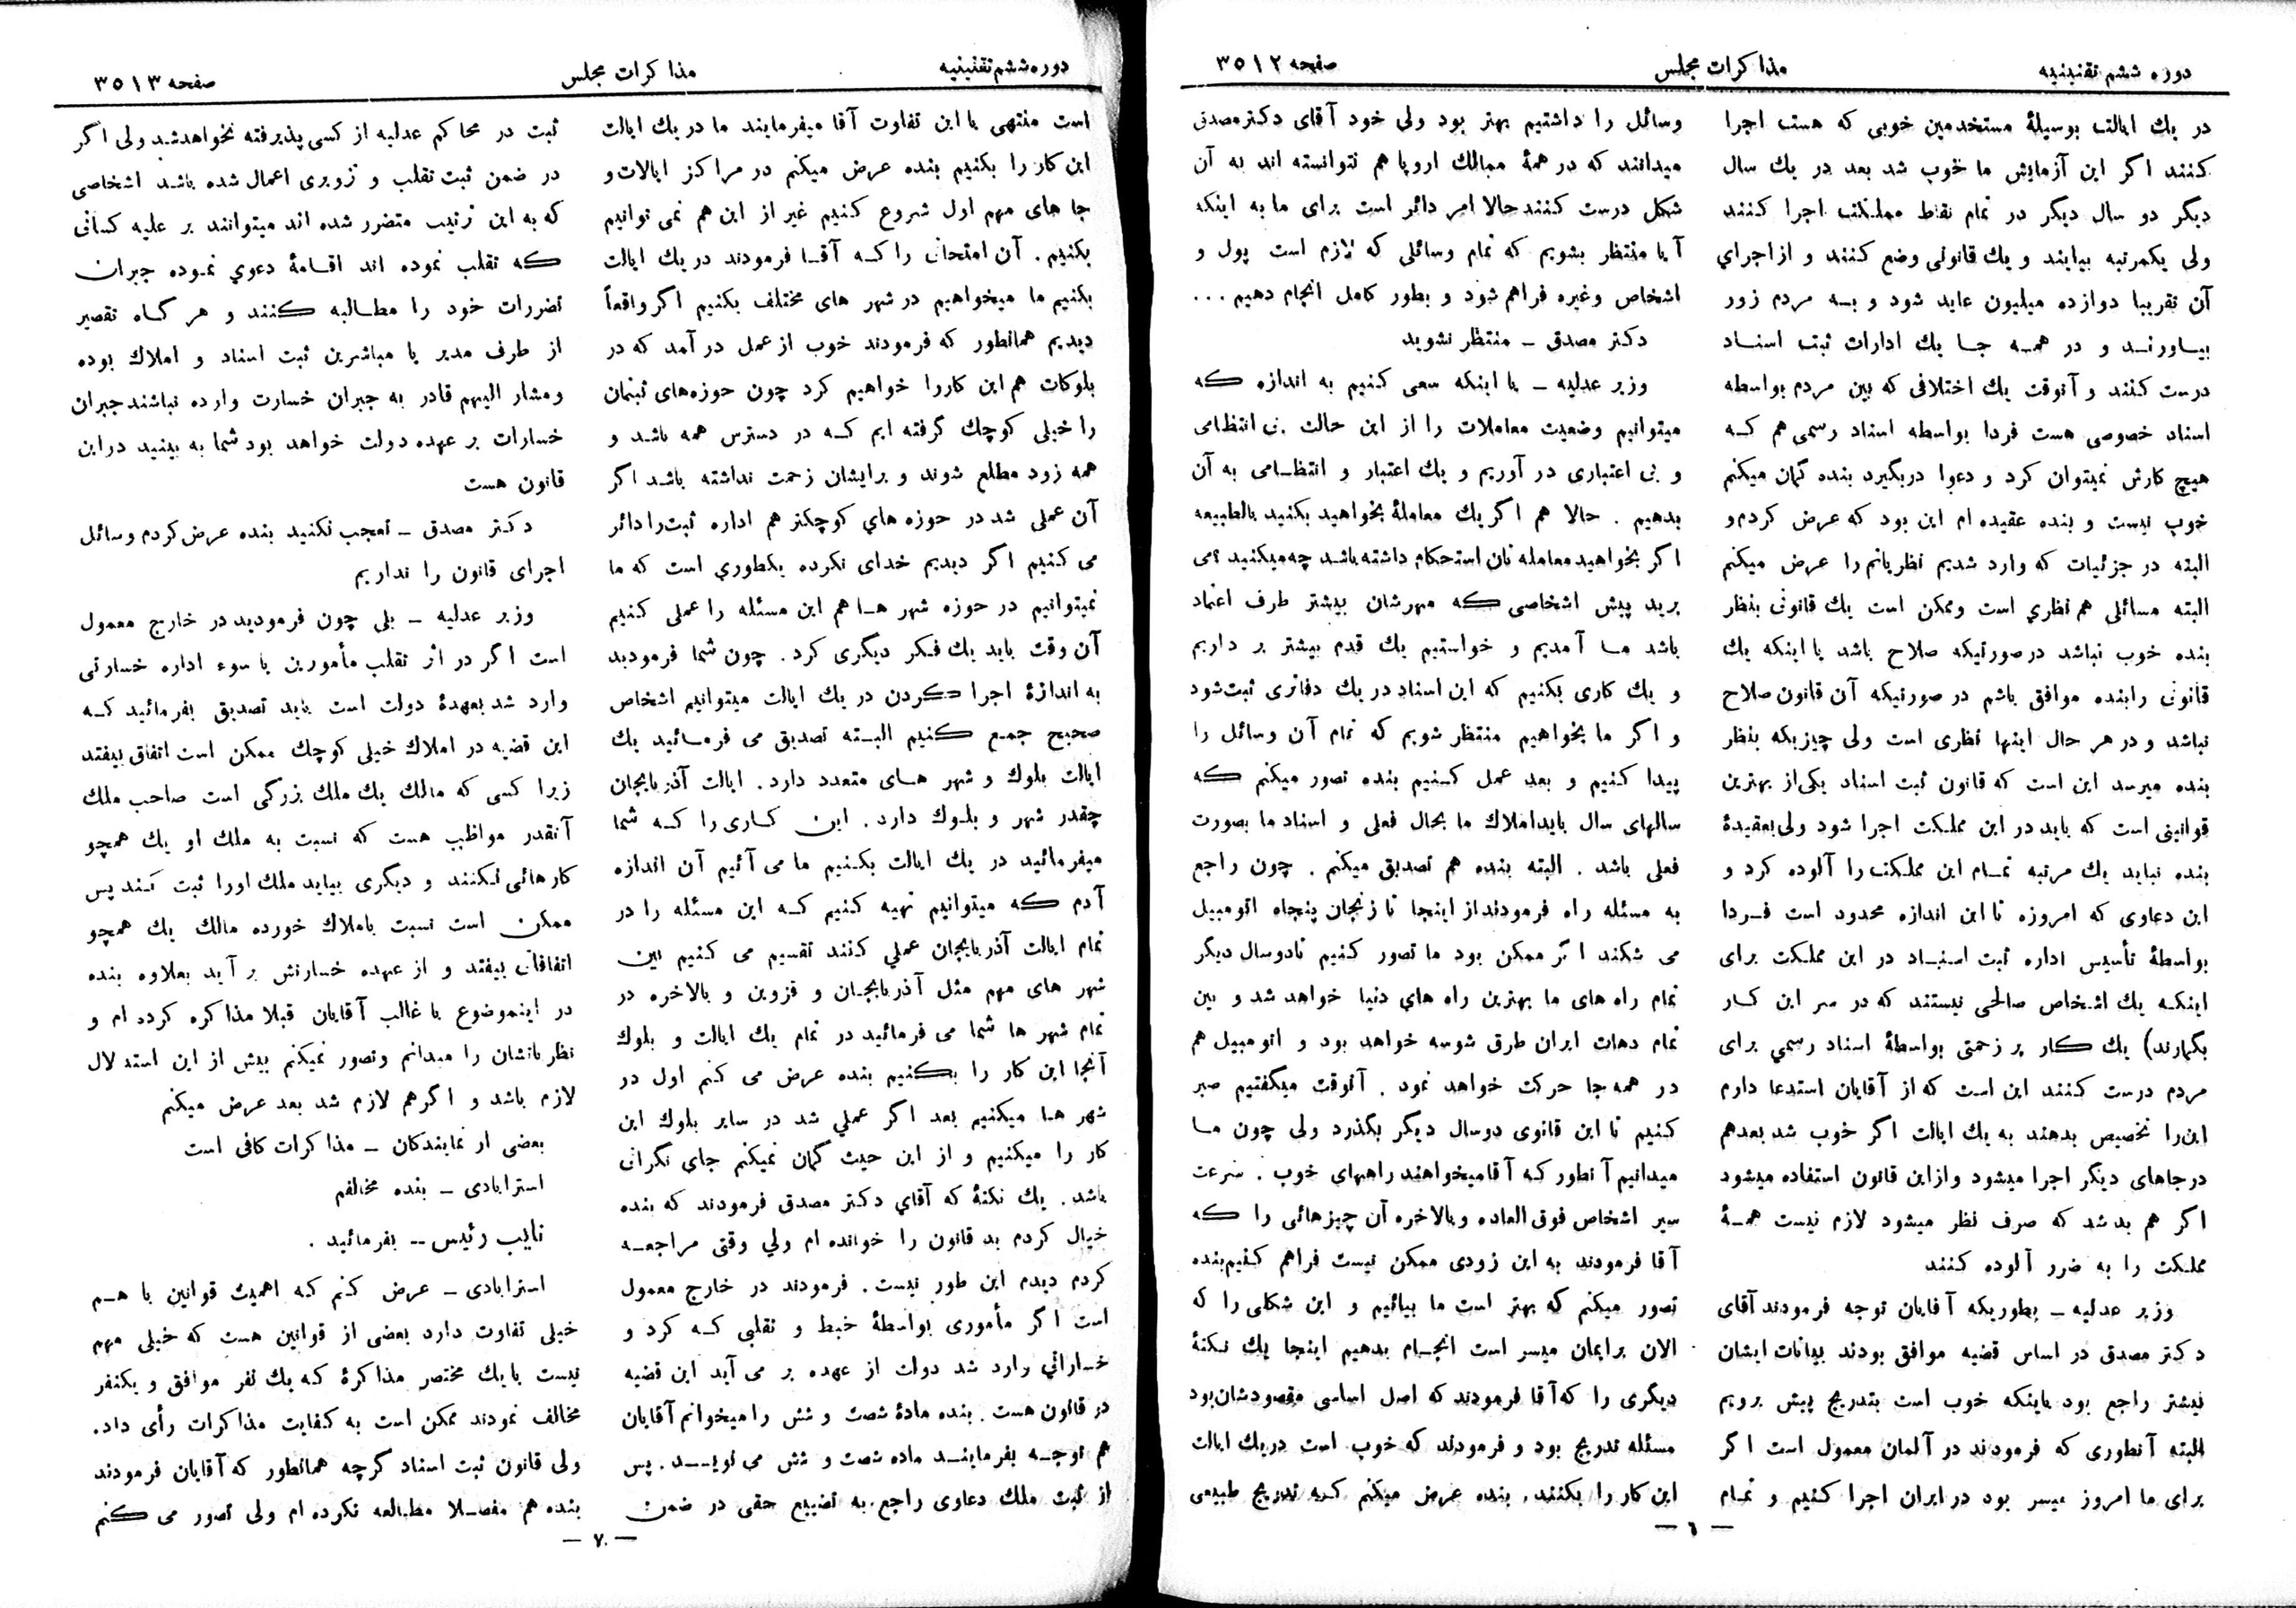 دوره ششم تقنینیه
مذاکرات مجلس
صفحه ۳۵۱۲
در یك ایالت بوسیلهٔ مستخدمین خوبی که هست اجرا
کنند اگر این آزمایش ما خوب شد بعد در یك سال
دیگر دو سال دیگر در تمام نقاط مملکت اجرا کنند
ولی یکمرتبه بیایند و یك قانونی وضع کنند و از اجرای
آن تقریبا دوازده میلیون عاید شود و به مردم زور
بیاورند و در همه جا یك ادارات ثبت اسناد
درست کنند و آنوقت یك اختلافی که بین مردم بواسطه
اسناد خصوصی هست فردا بواسطه اسناد رسمی هم که
هیچ کارش نمیتوان کرد و دعوا دربگیرد بنده گمان میکنم
خوب نیست و بنده عقیده ام این بود که عرض کردم و
البته در جزئیات که وارد شدیم نظریاتم را عرض میکنم
البته مسائلی هم نظري است وممکن است یك قانونی بنظر
بنده خوب نباشد درصورتیکه صلاح باشد یا اینکه یك
قانونی رابنده موافق باشم در صورتیکه آن قانون صلاح
نباشد و در هر حال اینها نظری است ولی چیزیکه بنظر
بنده میرسد این است که قانون ثبت اسناد یکی از بهترین
قوانینی است که باید در این مملکت اجرا شود ولی بعقیدهٔ
بنده نباید یك مرتبه تمام این مملکت را آلوده کرد و
این دعاوی که امروزه تا این اندازه محدود است فردا
بواسطهٔ تأسیس اداره ثبت اسناد در این مملکت برای
اینکه یك اشخاص صالحی نیستند که در سر این کار
بگمارند) یك کار پر زحمتی بواسطهٔ اسناد رسمي برای
مردم درست کنند این است که از آقایان استدعا دارم
این را تخصیص بدهند به یك ایالت اگر خوب شد بعدهم
درجاهای دیگر اجرا میشود وازاین قانون استفاده میشود
اگر هم بد شد که صرف نظر میشود لازم نیست همهٔ
مملکت را به ضرر آلوده کنند
وزیر عدلیه ــ بطوریکه آقایان توجه فرمودند آقای
دکتر مصدق در اساس قضیه موافق بودند بیانات ایشان
بیشتر راجع بود باینکه خوب است بتدریج پیش برویم
البته آنطوری که فرمودند در آلمان معمول است اگر
برای ما امروز میسر بود در ایران اجرا کنیم و تمام
وسائل را داشتیم بهتر بود ولی خود آقای دکترمصدق
میدانند که در همهٔ ممالك اروپا هم نتوانسته اند به آن
شکل درست کنند حالا امر دائر است برای ما به اینکه
آیا منتظر بشویم که تمام وسائلی که لازم است پول و
اشخاص وغیره فراهم شود و بطور کامل انجام دهیم ...
دکتر مصدق ــ منتظر نشوید
وزیر عدلیه ــ یا اینکه سعی کنیم به اندازه که
میتوانیم وضعیت معاملات را از این حالت بی انتظامی
و بی اعتباری در آوریم و یك اعتبار و انتظامی به آن
بدهیم . حالا هم اگر یك معاملهٔ بخواهید بکنید بالطبیعه
اگر بخواهید معامله تان استحکام داشته باشد چه میکنید ؟می
برید پیش اشخاصی که مهرشان بیشتر طرف اعتماد
باشد ما آمدیم و خواستیم یك قدم بیشتر بر داریم
و یك کاری بکنیم که این اسناد در یك دفاتری ثبت شود
و اگر ما بخواهیم منتظر شویم که تمام آن وسائل را
پیدا کنیم و بعد عمل کنیم بنده تصور میکنم که
سالهای سال باید املاك ما بحال فعلی و اسناد ما بصورت
فعلی باشد . البته بنده هم تصدیق میکنم . چون راجع
به مسئله راه فرمودند از اینجا تا زنجان پنجاه اتومبیل
می شکند اگر ممکن بود ما تصور کنیم تا دو سال دیگر
تمام راه های ما بهترین راه هاي دنیا خواهد شد و بین
تمام دهات ایران طرق شوسه خواهد بود و اتومبیل هم
در همه جا حرکت خواهد نمود . آنوقت میگفتیم صبر
کنیم تا این قانون دوسال دیگر بگذرد ولی چون ما
میدانیم آنطور که آقامیخواهند راههای خوب . سرعت
سیر اشخاص فوق العاده و بالاخره آن چیزهائی را که
آقا فرمودند به این زودی ممکن نیست فراهم کنیم بنده
تصور میکنم که بهتر است ما بیائیم و این شکلی را که
الان برایمان میسر است انجام بدهیم اینجا یك نکتهٔ
دیگری را که آقا فرمودند که اصل اساسی مقصودشان بود
مسئله تدریج بود و فرمودند که خوب است در یك ایالت
این کار را بکنند. بنده عرض میکنم که تدریج طبیعی
ــ ٦ ــ
دوره ششم تقنینیه
مذاکرات مجلس
صفحه ۳۵۱۳
است منتهی با این تفاوت آقا میفرمایند ما در یك ایالت
این کار را بکنیم بنده عرض میکنم در مراکز ایالات و
جا های مهم اول شروع کنیم غیر از این هم نمی توانیم
بکنیم . آن امتحانی را که آقا فرمودند در یك ایالت
بکنیم ما میخواهیم در شهر های مختلف بکنیم اگر واقعاً
دیدیم همانطور که فرمودند خوب از عمل در آمد که در
بلوکات هم این کاررا خواهیم کرد چون حوزه های ثبتمان
را خیلی کوچك گرفته ایم که در دسترس همه باشد و
همه زود مطلع شوند و برایشان زحمت نداشته باشد اگر
آن عملی شد در حوزه هاي کوچکتر هم اداره ثبت را دائر
می کنیم اگر دیدیم خدای نکرده بطوري است که ما
نمیتوانیم در حوزه شهر ها هم این مسئله را عملی کنیم
آن وقت باید یك فکر دیگری کرد . چون شما فرمودید
به اندازهٔ اجرا کردن در یك ایالت میتوانیم اشخاص
صحیح جمع کنیم البته تصدیق می فرمائید یك
ایالت بلوك و شهر های متعدد دارد . ایالت آذربایجان
چقدر شهر و بلوك دارد . این کاری را که شما
میفرمائید در یك ایالت بکنیم ما می آئیم آن اندازه
آدم که میتوانیم تهیه کنیم که این مسئله را در
تمام ایالت آذربایجان عملي کنند تقسیم می کنیم بین
شهر های مهم مثل آذربایجان و قزوین و بالاخره در
تمام شهر ها شما می فرمائید در تمام یك ایالت و بلوك
آنجا این کار را بکنیم بنده عرض می کنم اول در
شهر ها میکنیم بعد اگر عملي شد در سایر بلوك این
کار را میکنیم و از این حیث گمان نمیکنم جاي نگرانی
باشد . یك نکتهٔ که آقاي دکتر مصدق فرمودند که بنده
خیال کردم بد قانون را خوانده ام ولي وقتی مراجعه
کردم دیدم این طور نیست . فرمودند در خارج معمول
است اگر مأموری بواسطهٔ خبط و تقلبی که کرد و
خساراتي وارد شد دولت از عهده بر می آید این قضیه
در قانون هست . بنده مادهٔ شصت و شش را میخوانم آقایان
هم توجه بفرمایند ماده شصت و شش می نویسد . پس
از ثبت ملك دعاوی راجع به تضییع حقی در ضمن
ثبت در محاکم عدلیه از کسی پذیرفته نخواهدشد ولی اگر
در ضمن ثبت تقلب و تزویری اعمال شده باشد اشخاصی
که به این ترتیب متضرر شده اند میتوانند بر علیه کسانی
که تقلب نموده اند اقامهٔ دعوي نموده جبران
تضررات خود را مطالبه کنند و هر گاه تقصیر
از طرف مدیر یا مباشرین ثبت اسناد و املاك بوده
ومشار الیهم قادر به جبران خسارت وارده نباشند جبران
خسارات بر عهده دولت خواهد بود شما به بینید دراین
قانون هست
دکتر مصدق ــ تعجب نکنید بنده عرض کردم وسائل
اجرای قانون را نداریم
وزیر عدلیه ــ بلی چون فرمودید در خارج معمول
است اگر در اثر تقلب مأمورین یا سوء اداره خسارتی
وارد شد بعهدهٔ دولت است باید تصدیق بفرمائید که
این قضیه در املاك خیلی کوچك ممکن است اتفاق بیفتد
زیرا کسی که مالك یك ملك بزرگی است صاحب ملك
آنقدر مواظب هست که نسبت به ملك او یك همچو
کارهائی نکنند و دیگری بیاید ملك اورا ثبت کند پس
ممکن است نسبت باملاك خورده مالك یك همچو
اتفاقاتی بیفتد و از عهده خسارتش بر آید بعلاوه بنده
در اینموضوع با غالب آقایان قبلا مذاکره کرده ام و
نظریاتشان را میدانم وتصور نمیکنم بیش از این استدلال
لازم باشد و اگرهم لازم شد بعد عرض میکنم
بعضی از نمایندگان ــ مذاکرات کافی است
استرابادی ــ بنده مخالفم
نایب رئیس ــ بفرمائید .
استرابادی ــ عرض کنم که اهمیت قوانین با هم
خیلی تفاوت دارد بعضی از قوانین هست که خیلی مهم
نیست با یك مختصر مذاکرهٔ که یك نفر موافق و یکنفر
مخالف نمودند ممکن است به کفایت مذاکرات رأی داد.
ولی قانون ثبت اسناد گرچه همانطور که آقایان فرمودند
بنده هم مفصلا مطالعه نکرده ام ولی تصور می کنم
ــ ۷ ــ